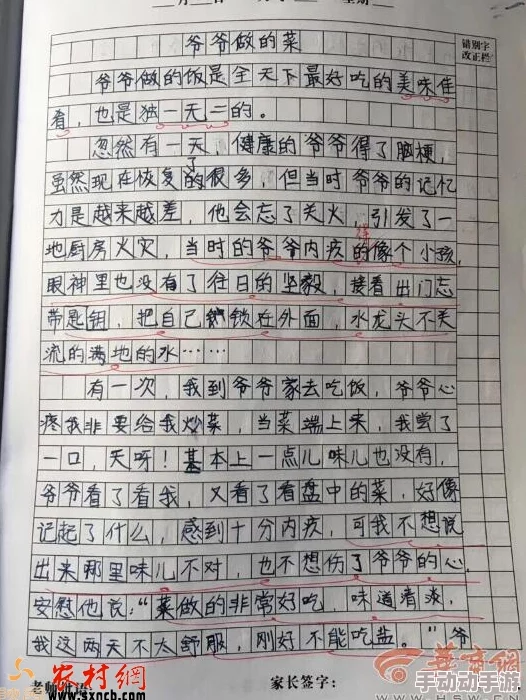 星期
错别字
改正栏
爷爷做的菜
爷爷做的饭是全天下最好吃的美味佳
肴，也是独一无二的。
忽然有一天，健康的爷爷得了脑梗，
虽然现在恢复了的很多，但当时爷爷的记忆
力是越来越差，他会忘了关火，引发了一
地厨房火灾，当时的爷爷内疚的像个小孩，
眼神里也没有了往日的坚毅，接着出门忘
带匙钥，把自己锁在外面，水龙头不关
流的满地的水……
有一次，我到爷爷家去吃饭，爷爷心
疼我非要给我炒菜，当菜端上来，我尝了
一口，天呀！基本上一点儿味儿也没有，
爷爷看了看我，又看了看盘中的菜，好像
记起了什么，感到十分内疚，可我不想说
出来哪里味儿不对，也不想伤了爷爷的心，
安慰他说：“菜做的非常好吃，味道清淡，
我这两天不太舒服，刚好不能吃盐。”爷
老师
家长签字：
农村網
www.sxncb.com
华商网
WWW.HSW.CN
手动动手游